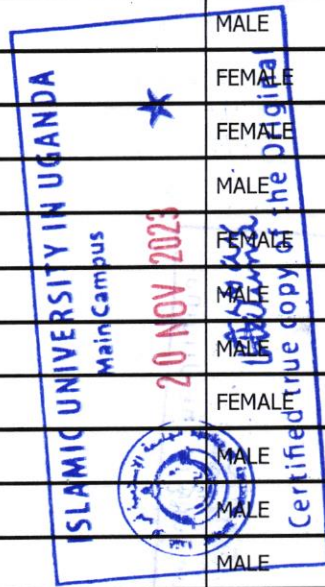 MALE
FEMALE
FEMALE
MALE
FEMALE
MALE
MALE
FEMALE
MALE
MALE
MALE
ISLAMIC UNIVERSITY IN UGANDA
Main Campus
20 NOV 2023
Certified true copy of the Original